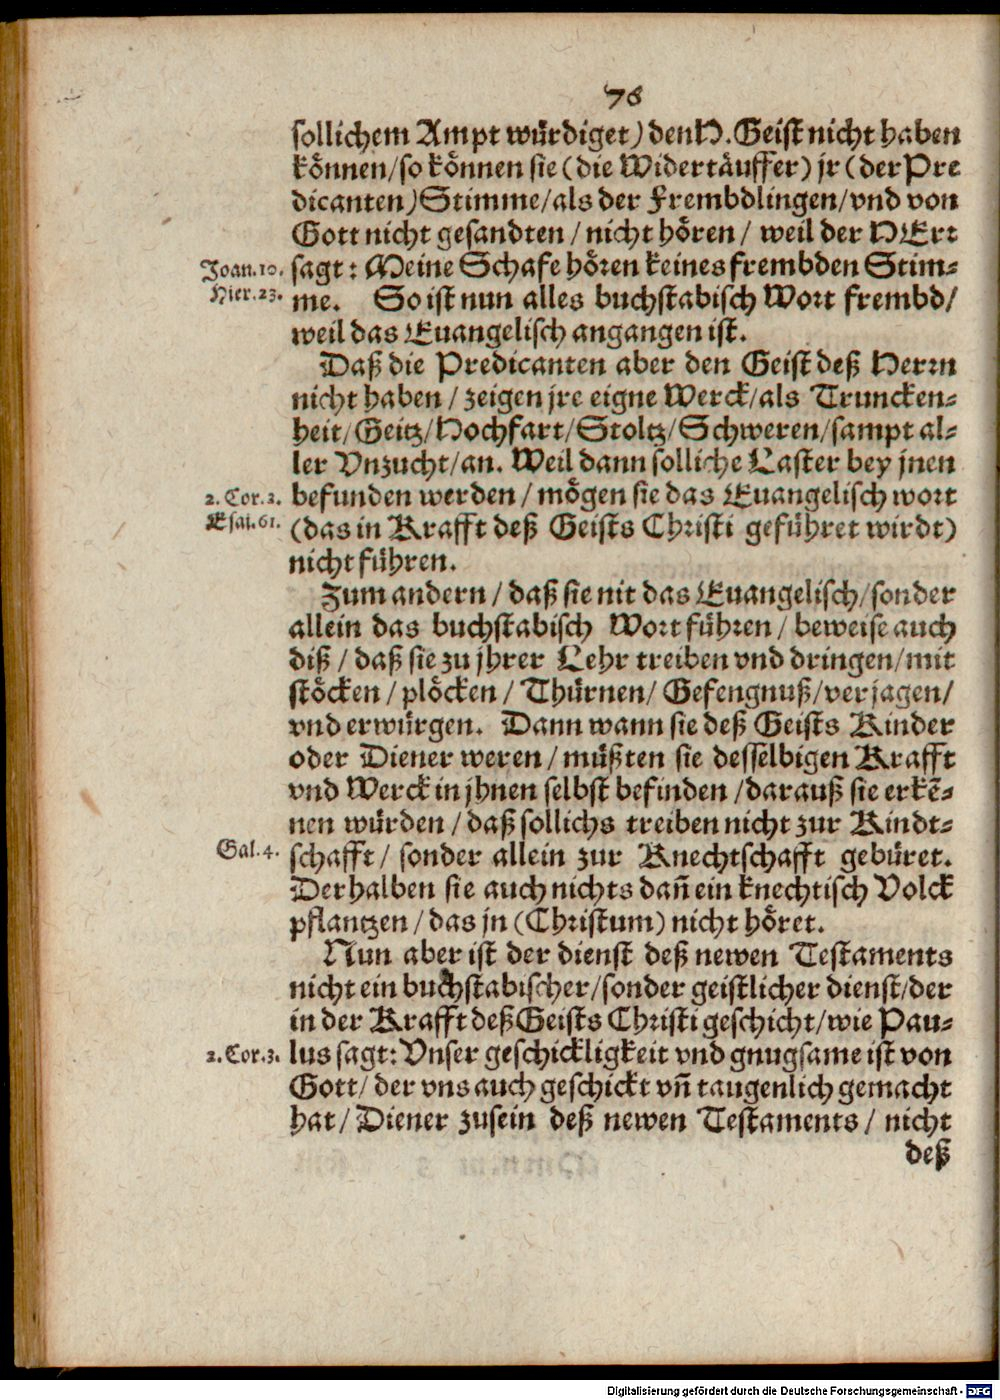 76
sollichem Ampt würdiget) den H. Geist nicht haben
können/so können sie (die Widertäuffer) jr (der Pre
dicanten) Stimme/als der Frembdlingen/vnd von
Gott nicht gesandten / nicht hören / weil der HErr
Joan.10. sagt: Meine Schafe hören keines frembden Stim-
Hier.23. me. So ist nun alles buchstabisch Wort frembd/
weil das Euangelisch angangen ist.
Daß die Predicanten aber den Geist deß Herrn
nicht haben / zeigen jre eigne Werck/als Truncken-
heit/Geitz/Hochfart/Stoltz/Schweren/sampt al-
ler Vnzucht/an. Weil dann solliche Laster bey jnen
2. Cor. 2. befunden werden / mögen sie das Euangelisch wort
Esai.61. (das in Krafft deß Geists Christi geführet wirdt)
nicht führen.
Zum andern / daß sie nit das Euangelisch/sonder
allein das buchstabisch Wort führen / beweise auch
diß / daß sie zu jhrer Lehr treiben vnd dringen/mit
stöcken / plöcken / Thürnen/ Gefengnuß/verjagen/
vnd erwürgen. Dann wann sie deß Geists Kinder
oder Diener weren / müßten sie desselbigen Krafft
vnd Werck in jhnen selbst befinden /darauß sie erkē-
nen würden / daß sollichs treiben nicht zur Kindt-
Gal.4. schafft/ sonder allein zur Knechtschafft gebüret.
Derhalben sie auch nichts dañ ein knechtisch Volck
pflantzen / das jn (Christum) nicht höret.
Nun aber ist der dienst deß newen Testaments
nicht ein buchstabischer/sonder geistlicher dienst/der
in der Krafft deß Geists Christi geschicht/wie Pau-
2. Cor.3. lus sagt: Vnser geschickligkeit vnd gnugsame ist von
Gott/ der vns auch geschickt vñ taugenlich gemacht
hat/ Diener zusein deß newen Testaments / nicht
deß
Digitalisierung gefördert durch die Deutsche Forschungsgemeinschaft - DFG